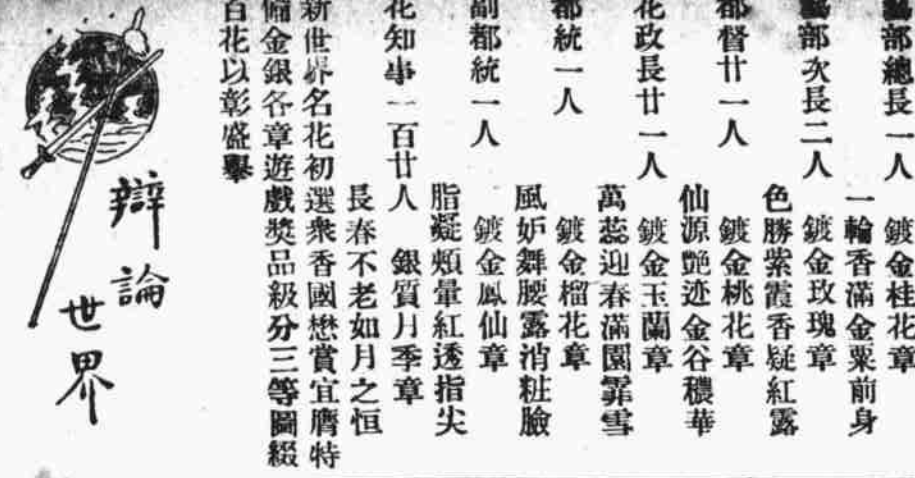 藝部總長一人　鍍金桂花章
一輪香滿金粟前身
藝部次長二人　鍍金玫瑰章
色勝紫霞香疑紅露
都督廿一人　鍍金桃花章
仙源艷迹金谷穠華
花政長廿一人　鍍金玉蘭章
萬蕊迎春滿園霏雪
都統一人　鍍金榴花章
風妒舞腰露消粧臉
副都統一人　鍍金鳳仙章
脂凝頰暈紅透指尖
花知事一百廿人　銀質月季章
長春不老如月之恒
新世界名花初選衆香國懋賞宜膺特
備金銀各章遊戲獎品級分三等圖綴
百花以彰盛舉
辯論
世界